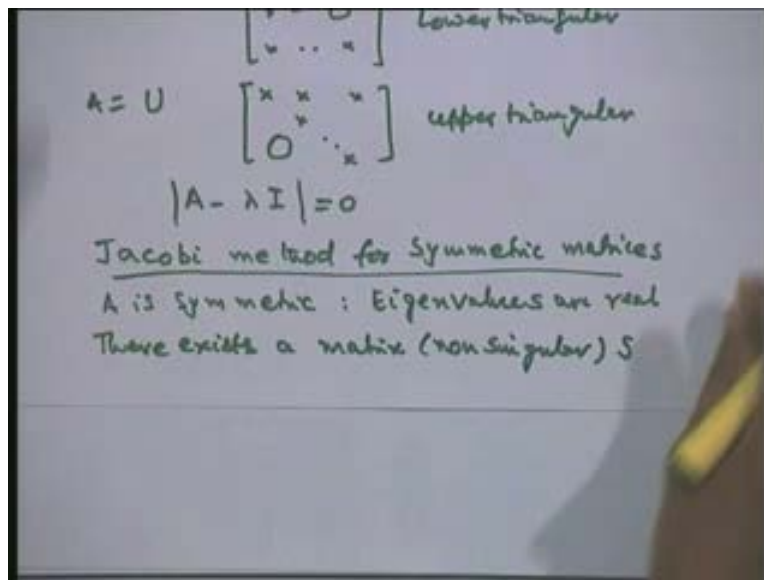 [x - 0] Lower triangular
[x .. x]
A = U [x x x] upper triangular
x
O ⋱ x
|A - λI| = 0
Jacobi method for Symmetric matrices
A is symmetric : Eigenvalues are real
There exists a matrix (non singular) S